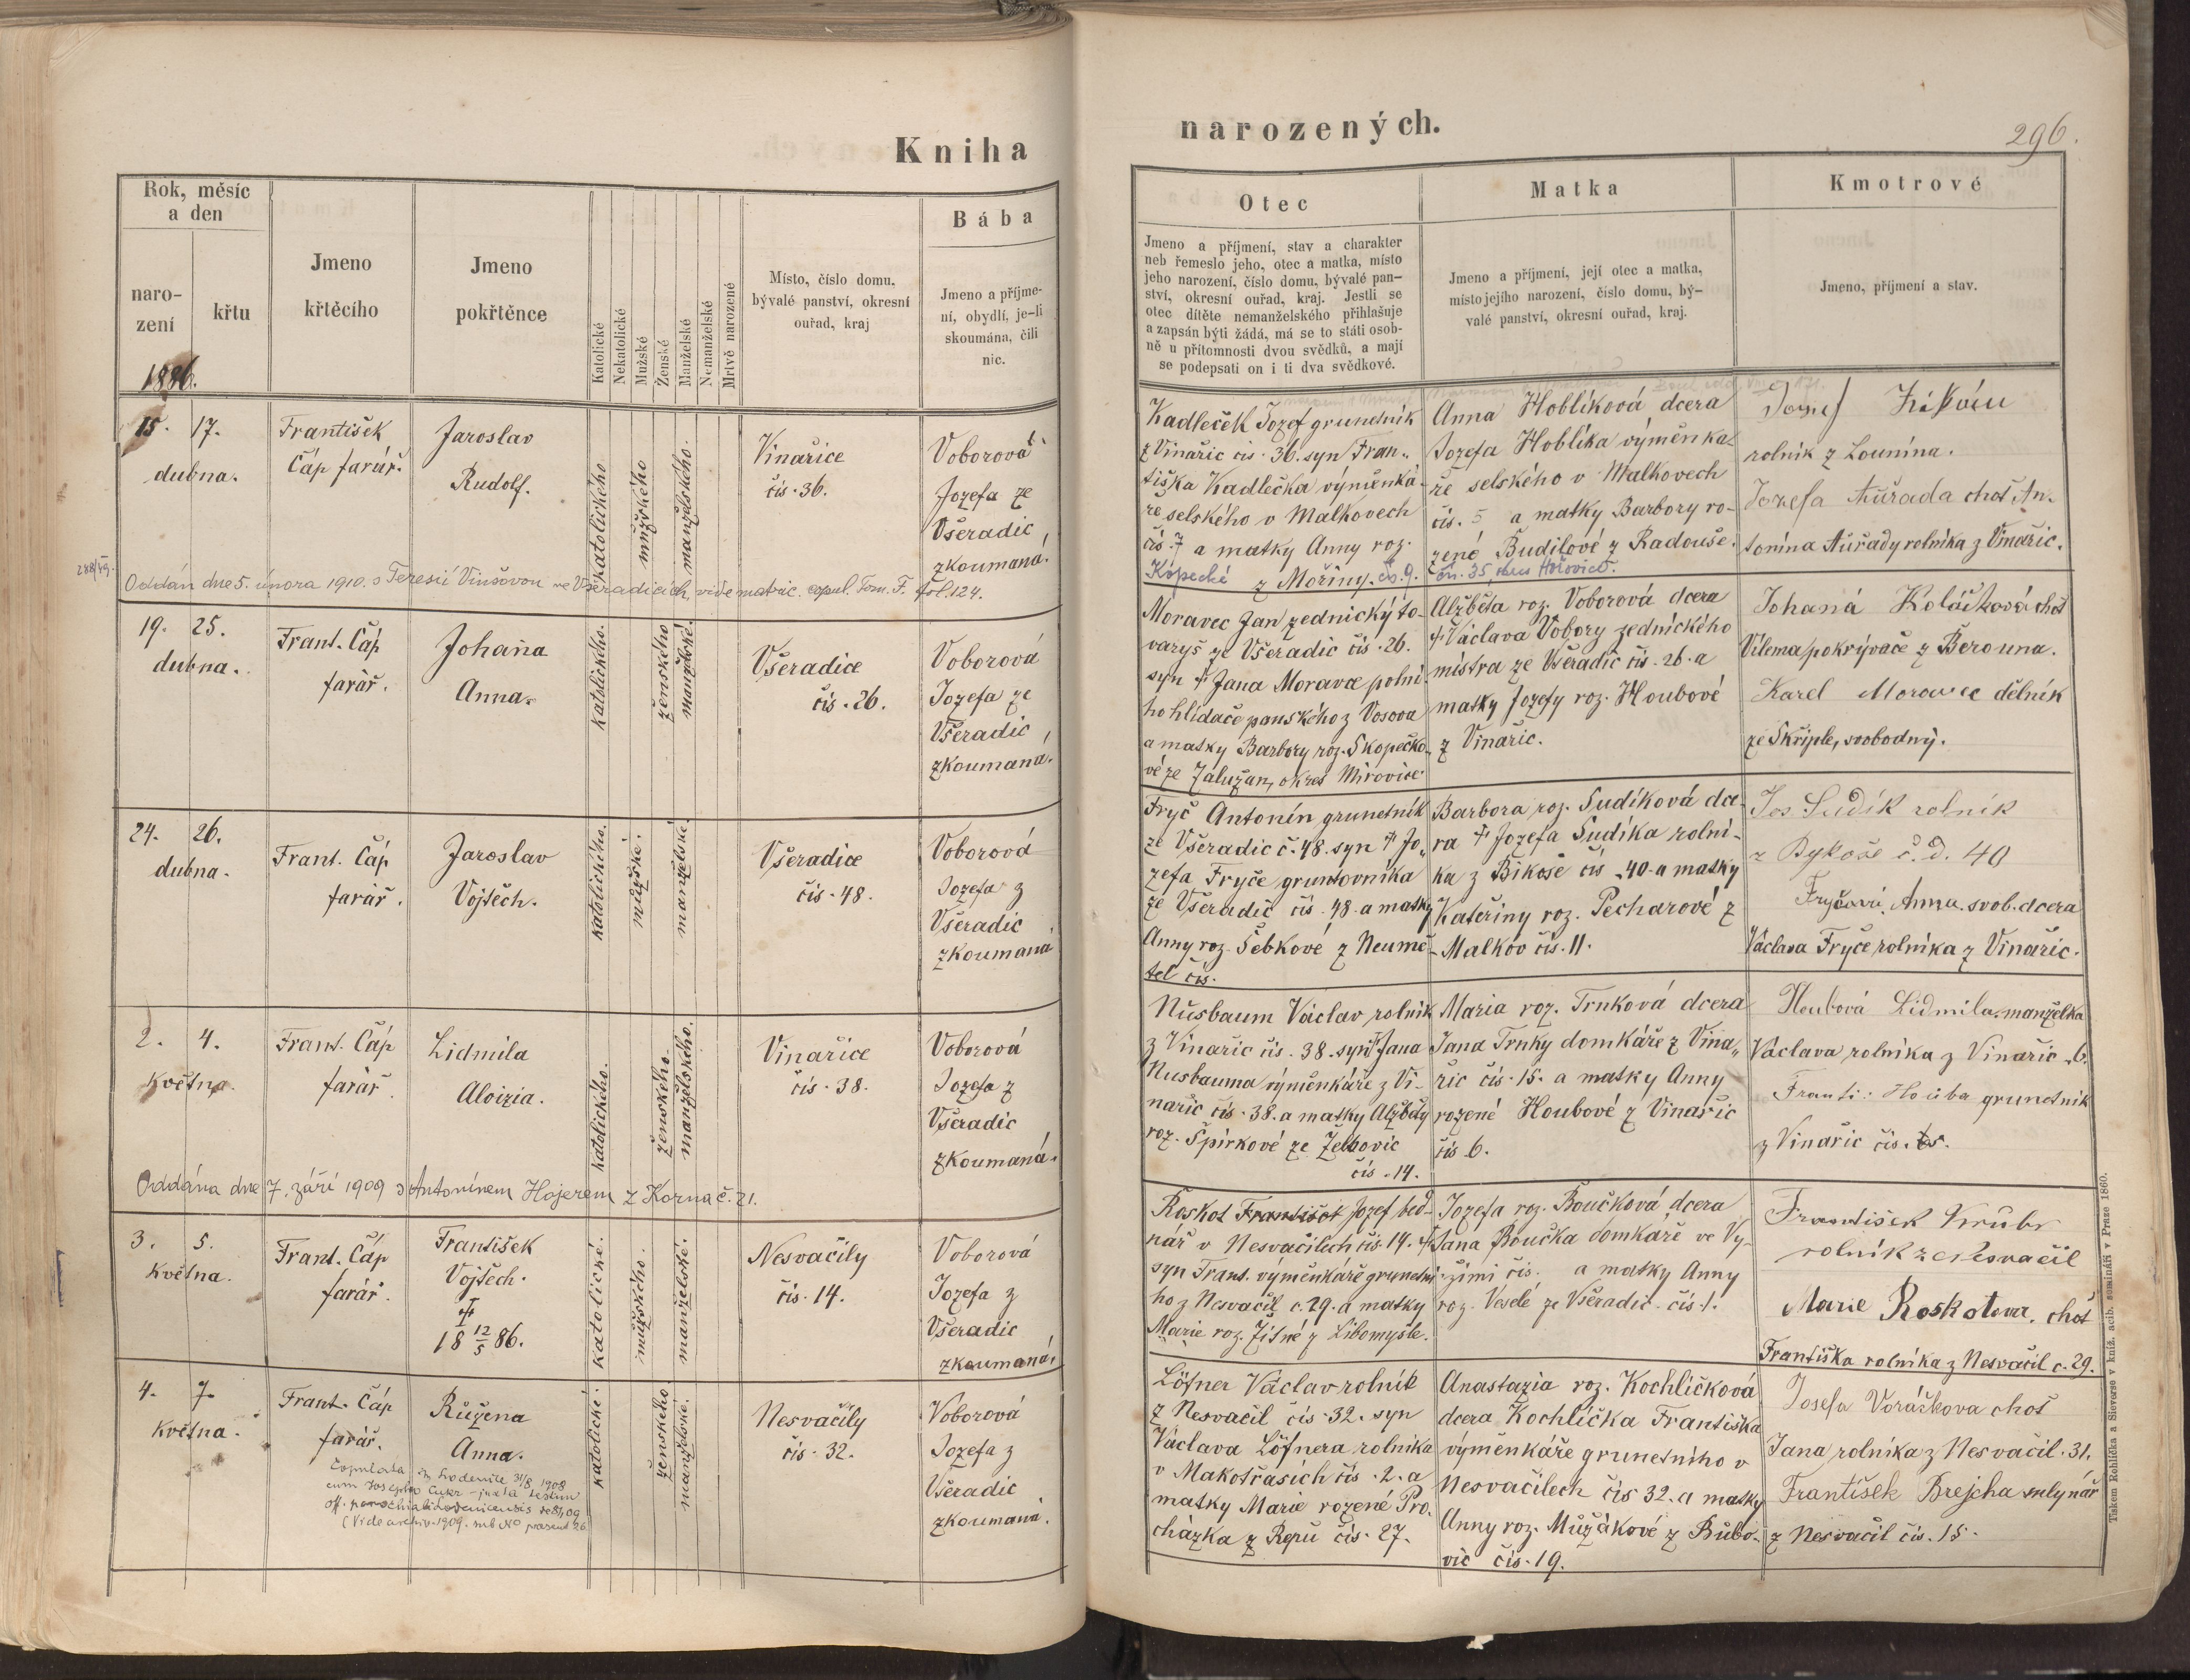 Kniha
narozených.
296.
Rok, měsíc
a den
naro-
zení
křtu
1886.
Jmeno
křtěcího
Jmeno
pokřtěnce
Katolické
Nekatolické
Mužské
Ženské
Manželské
Nemanželské
Mrtvě narozené
Místo, číslo domu,
bývalé panství, okresní
ouřad, kraj
Bába
Jmeno a příjme-
ní, obydlí, je-li
skoumána, čili
nic.
Otec
Jmeno a příjmení, stav a charakter
neb řemeslo jeho, otec a matka, místo
jeho narození, číslo domu, bývalé pan-
ství, okresní ouřad, kraj. Jestli se
otec dítěte nemanželského přihlašuje
a zapsán býti žádá, má se to státi osob-
ně u přítomnosti dvou svědků, a mají
se podepsati on i ti dva svědkové.
Matka
Jmeno a příjmení, její otec a matka,
místo jejího narození, číslo domu, bý-
valé panství, okresní ouřad, kraj.
Kmotrové
Jmeno, příjmení a stav.
15. 17.
dubna.
František
Čáp farář.
Jaroslav
Rudolf.
katolického
mužského
manželského.
Vinařice
čís. 36.
Voborová
Jozefa ze
Všeradic
zkoumaná.
Kadleček Jozef grunetník
z Vinařic čís. 36. syn Fran-
tiška Kadlečka výměnká-
ře selského v Malkovech
čís. 7 a matky Anny roz.
Kopecké z Mořiny. čs. 9.
Anna Hoblíková dcera
Jozefa Hoblíka výměnka-
ře selského v Malkovech
čís. 5 a matky Barbory ro-
zené Budilové z Radouše.
čís. 35, okres Hořovice.
Josef
rolník z Lounína.
Jozefa choť An-
tonína rolníka z Vinařic.
288/49.
Oddán dne 5. února 1910. s Teresií Vinšovou ve Všeradicích, vide matric. copul. Tom. F. fol. 124.
19. 25.
dubna.
Frant. Čáp
farář.
Johana
Anna.
katolického.
ženského
manželské.
Všeradice
čís. 26.
Voborová
Jozefa ze
Všeradic
zkoumaná.
Moravec Jan zednický to-
varyš ze Všeradic čís. 26.
syn † Jana Moravce polní-
ho hlídače panského z Vosova
a matky Barbory roz. Skopečko-
vé ze Zalužan, okres Mirovice.
Alžběta roz. Voborová dcera
† Václava Vobory zednického
mistra ze Všeradic čís. 26. a
matky Jozefy roz. Houbové
z Vinařic.
Johana Koláčková choť
Vilema pokrývače z Berouna.
Karel Moravec dělník
ze Skřiple, svobodný.
24. 26.
dubna.
Frant. Čáp
farář.
Jaroslav
Vojtěch.
katolického.
mužské.
manželské.
Všeradice
čís. 48.
Voborová
Jozefa z
Všeradic
zkoumaná
Fryč Antonín grunetník
ze Všeradic č. 48. syn † Jo-
zefa Fryče gruntovníka
ze Všeradic čís. 48. a matky
Anny roz. Šebkové z Neumě-
tel čís.
Barbora roz. Sudíková dce-
ra † Jozefa Sudíka rolní-
ka z Bíkoše čís. 40. a matky
Kateřiny roz. Pecharové z
Malkov čís. 11.
Jos Sudík rolník
z Bykoše č. d. 40
Fryčová Anna. svob. dcera
Václava Fryče rolníka z Vinařic.
2. 4.
května.
Frant. Čáp
farář.
Lidmila
Aloizia.
katolického.
ženského.
manželského.
Vinařice
čís. 38.
Voborová
Jozefa z
Všeradic
zkoumaná.
Nusbaum Václav rolník
z Vinařic čís. 38. syn † Jana
Nusbauma výměnkáře z Vi-
nařic čís. 38. a matky Alžběty
roz. Špírkové ze Želkovic
čís. 14.
Maria roz. Trnková dcera
Jana Trnky domkáře z Vina-
řic čís. 15. a matky Anny
rozené Houbové z Vinařic
čís 6.
Houbová Lidmila. manželka
Václava rolníka z Vinařic 6.
Franti: Houba grunetník
z Vinařic čís.
Oddána dne 7. září 1909 s Antonínem Hojerem z Korna č. 21.
3. 5.
května.
Frant. Čáp
farář.
František
Vojtěch.
†
18 12/5 86.
katolické.
mužského.
manželské.
Nesvačily
čís. 14.
Voborová
Jozefa z
Všeradic
zkoumaná.
Roskot František Jozef bed-
nář v Nesvačilech čís. 14.
syn Frant. výměnkáře grunetní-
ho z Nesvačil c. 29. a matky
Marie roz. Jísné z Libomyšle.
Jozefa roz. Boučková dcera
† Jana Boučka domkáře ve Vy-
žími čís. a matky Anny
roz. Veselé ze Všeradic. čís. 1.
František Krůbr
rolník z Nesvačil
Marie Roskotova. choť
Františka rolníka z Nesvačil c. 29.
4. 7.
května.
Frant. Čáp
farář.
Růžena
Anna.
Copulata in Lodenice 31/8 1908
cum Josepho Cukr - juxta testim
off. parochialis Lodenicensis
(Vide archiv. 1909. sub No praesent 26
katolické.
ženského.
manželské.
Nesvačily
čís. 32.
Voborová
Jozefa z
Všeradic
zkoumaná.
Löfner Václav rolník
z Nesvačil čís. 32. syn
Václava Löfnera rolníka
v Makotřasích čís. 2. a
matky Marie rozené Pro-
cházka z Řepů čís. 27.
Anastazia roz. Kochlíčková
dcera Kochlíčka Františka
výměnkáře grunetního v
Nesvačilech čís 32. a matky
Anny roz. Mužákové z Bubo-
vic čís. 19.
Josefa Voráčkova choť
Jana rolníka z Nesvačil. 31.
František Brejcha mlynář
z Nesvačil čís. 15.
Tiskem Rohlíčka a Sieverse v kníž. arcib. semináři v Praze 1860.